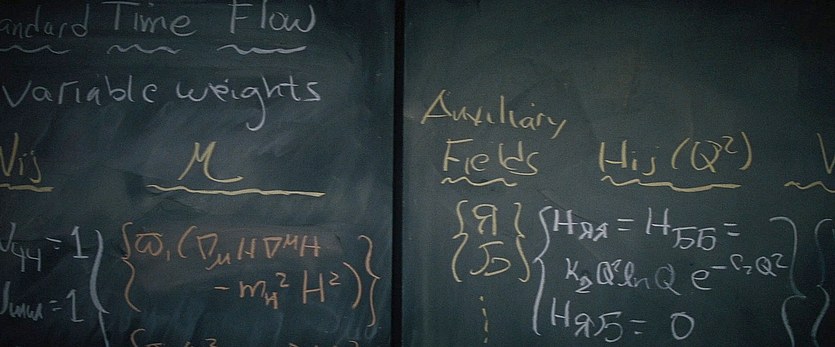 andard Time Flow
variable weights
Vij M
= 1 { ϖ₁ (∇μH∇^μH
- m_H² H²) }
= 1
Auxiliary
Fields Hij (Q²) V
{Я} { H_ЯЯ = H_ББ =
{Б} K₂Q²lnQ e^-c₂Q² }
⋮ H_ЯБ = 0